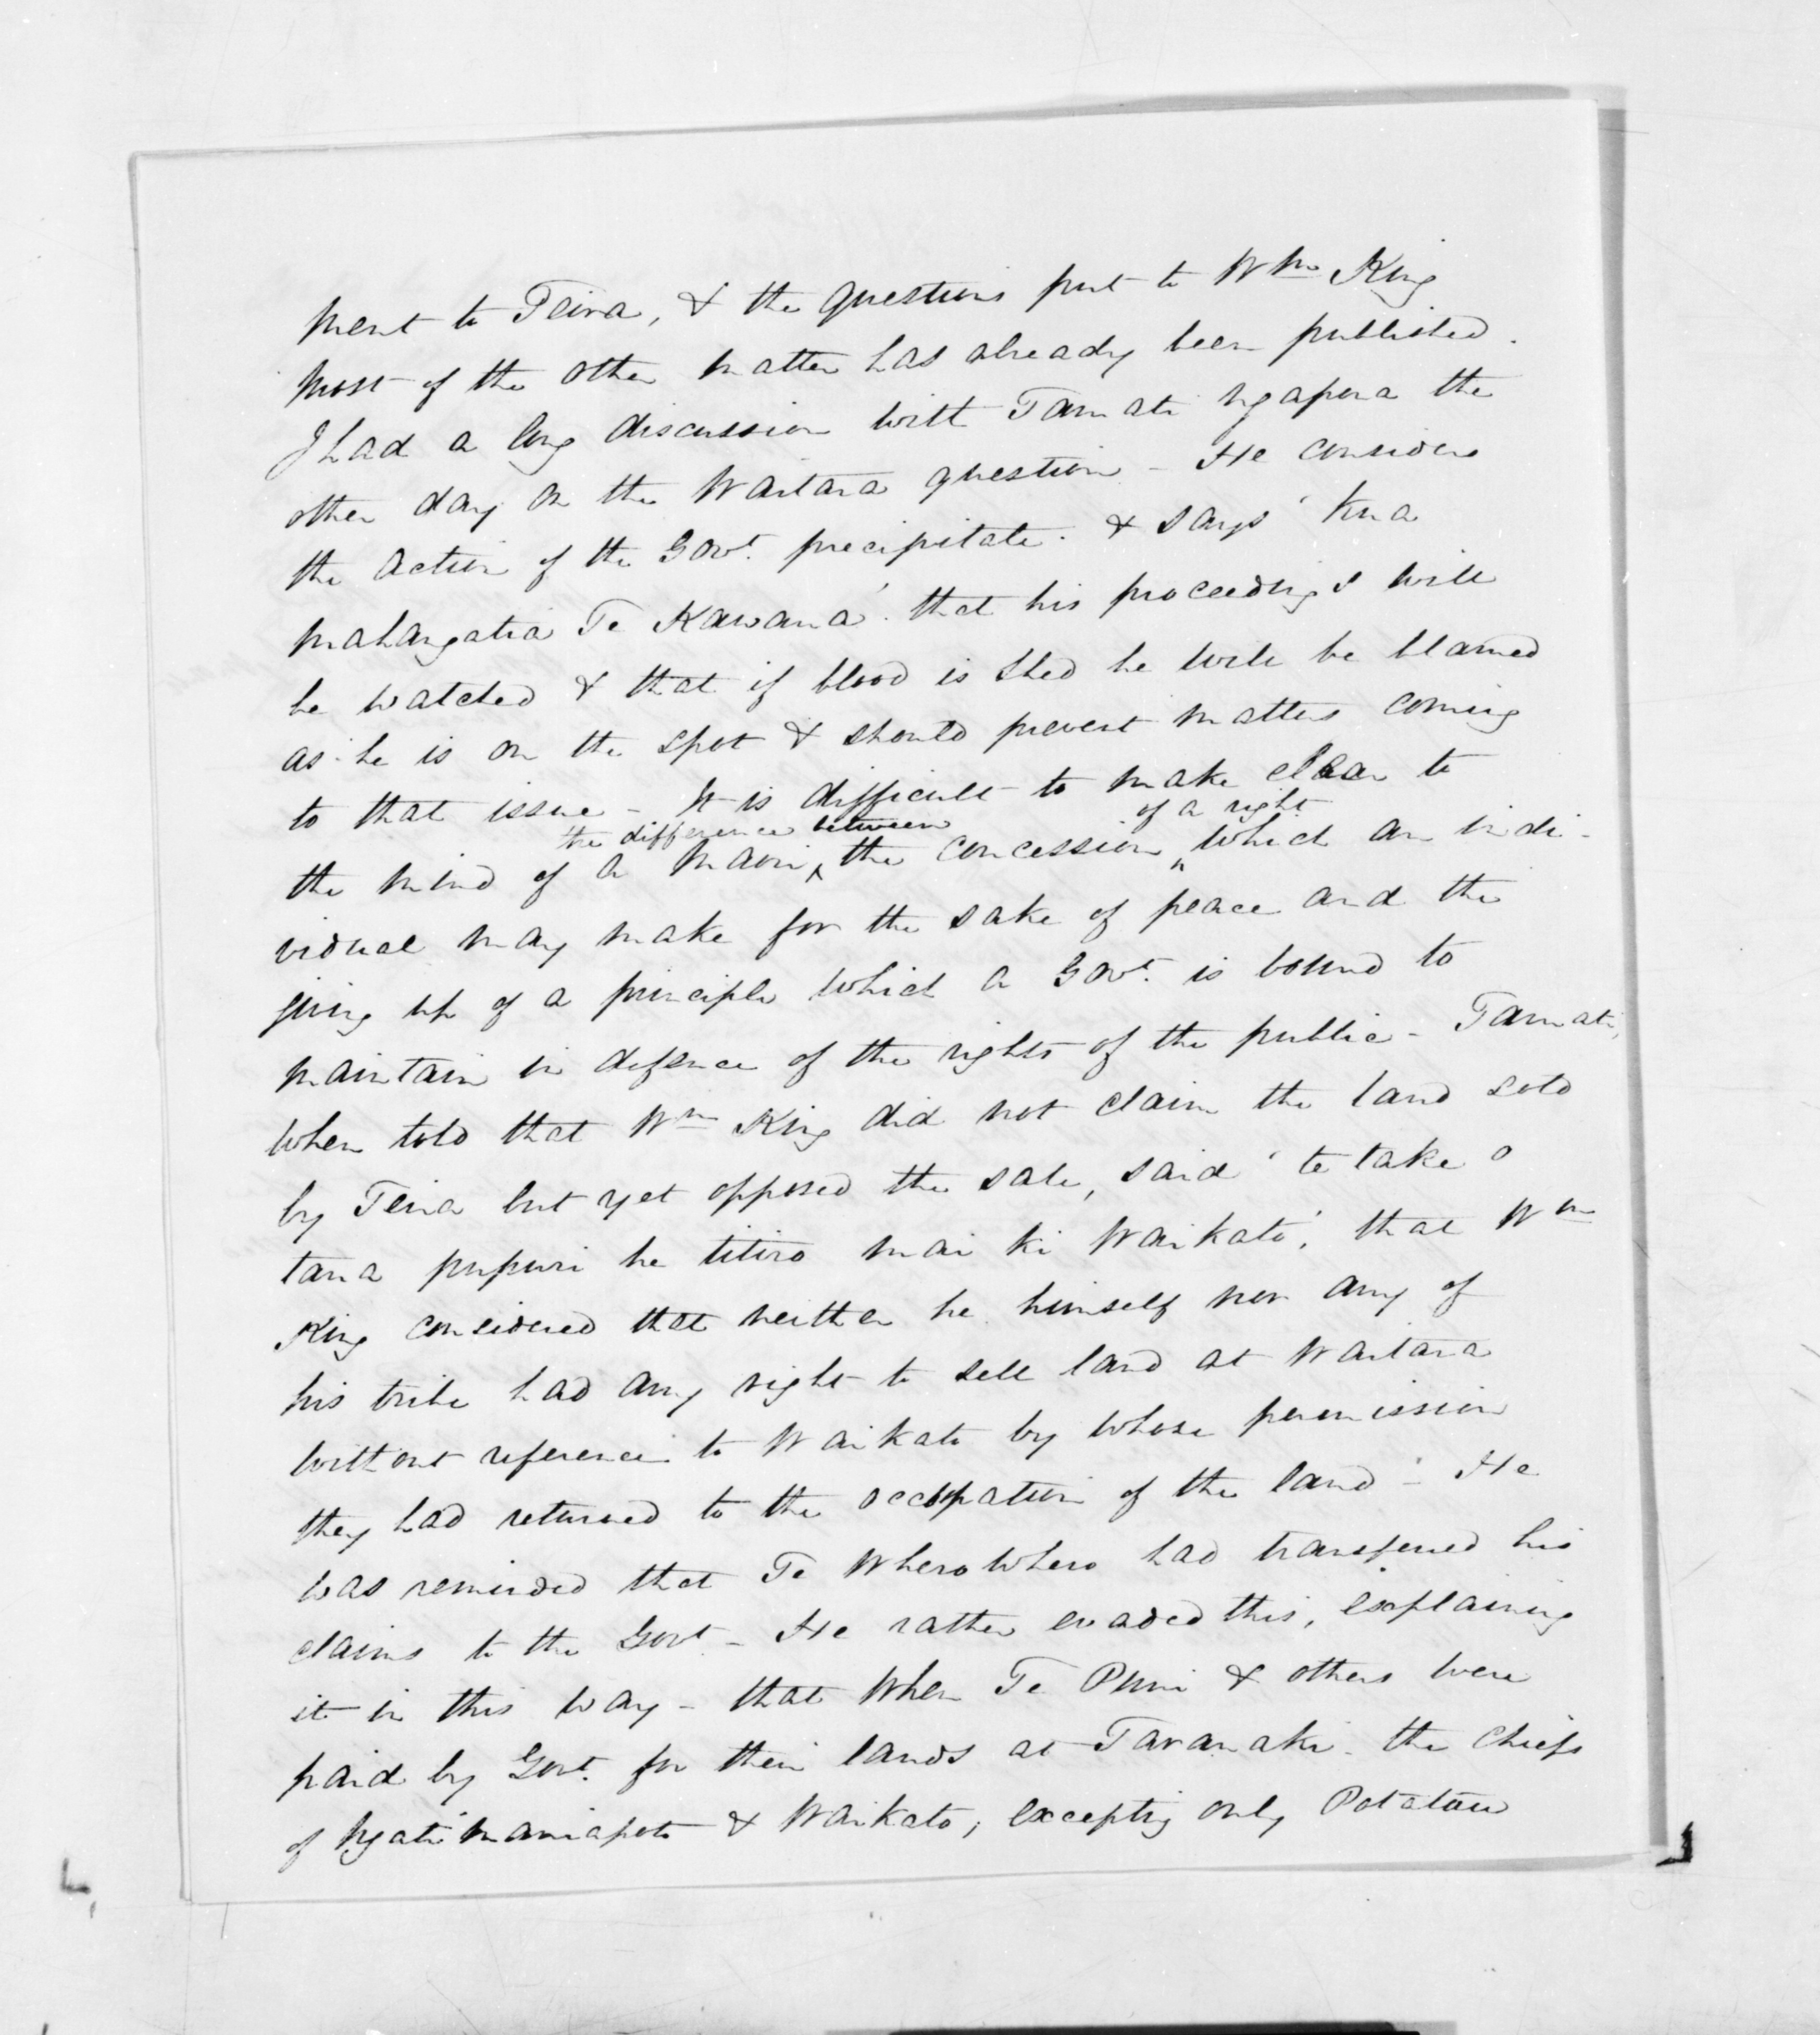 ment to Teira, & the questions put to Wm King
most of the other matter has already been published.
I had a long discussion with Tamati Ngapora the
other day on the Waitara question - He considers
the action of the Govt. precipitate. & says 'kua
mahangatia Te Kawana'. that his proceedings will
be watched & that if blood is shed he will be blamed
as he is on the spot & should prevent matters coming
to that issue - It is difficult to make clear to
the mind of a Maori ^ the difference between the concession ^ of a right which an indi-
vidual may make for the sake of peace and the
giving up of a principle which a Govt. is bound to
maintain in defence of the rights of the public - Tamati,
when told that Wm King did not claim the land sold
by Teira but yet opposed the sale, said 'te take o
tana pupuri he titiro mai ki Waikato', that Wm
King considered that neither he himself nor any of
his tribe had any right to sell land at Waitara
without reference to Waikato by whose permission
they had returned to the occupation of the land - He
was reminded that Te Wherowhero had transferred his
claims to the Govt - He rather evaded this, explaining
it in this way - that when Te Puni & others were
paid by Govt. for their lands at Taranaki - the chiefs
of Ngatimaniapoto & Waikato, excepting only Potatau